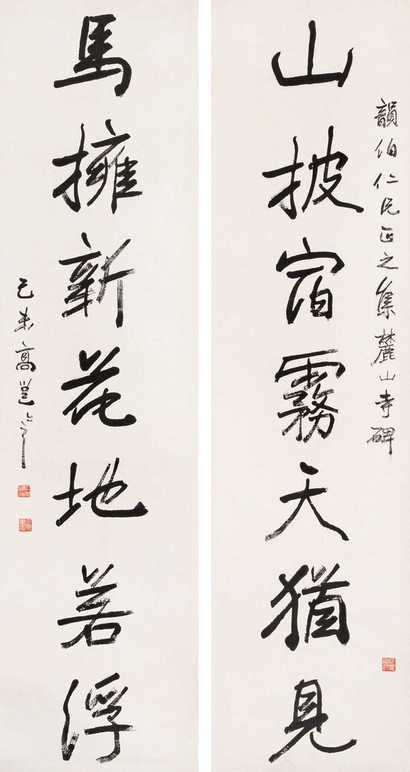 韻伯仁兄正之集麓山寺碑
山披宿霧天猶見
馬擁新花地若浮
己未高邕